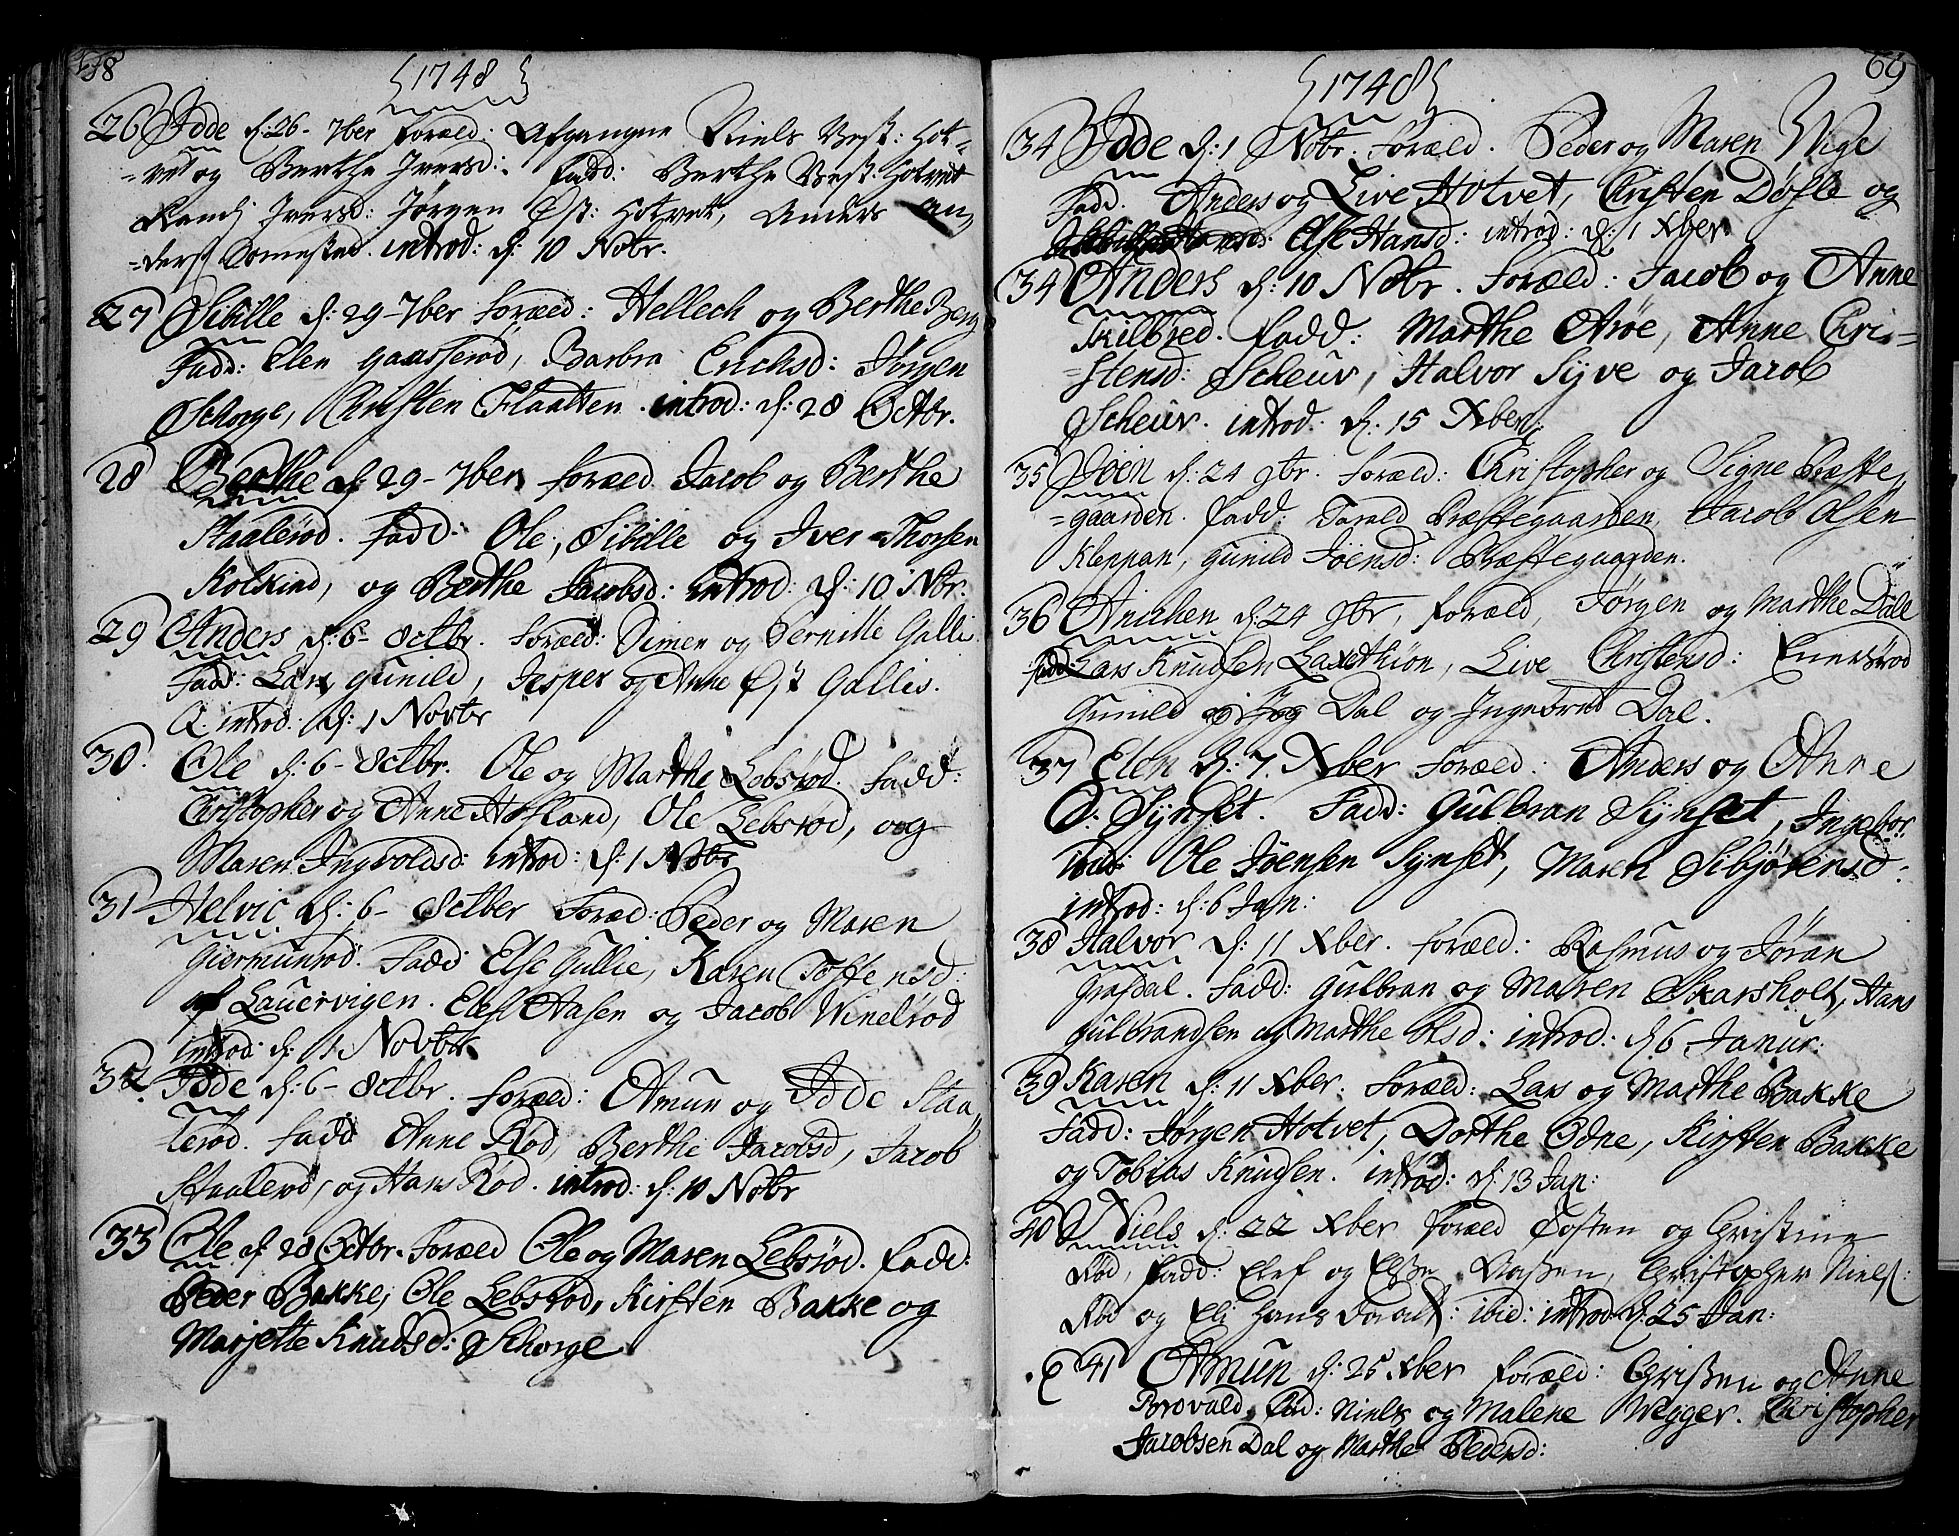 1748
26 Idde d: 26- 7ber foræld: Afgangne Niels Vest: Hot-
=vet og Berthe Iversd: fadd: Berthe Vest: Hotvet
Randj Iversd: Jørgen Øst: Hotvet, Anders An-
=ders. introd: d: 10 Nobr.
27 Sibille d: 29-7ber foræld: Hellech og Berthe Berg
Fadd: Elen Gaasserød, Barbra Erichsd: Jørgen
Schorge, Christen Flaatten. introd: d: 28 Octbr.
28 Berthe d 29-7ber foræld Jacob og Berthe
Staalerød. fadd: Ole, Sibille og Iver Thorsen
Kolkind, og Berthe Jacobsd: introd: d: 10 Nobr.
29 Anders d: 6- 8ctbr. foræld: Simen og Pernille Galli
Fadd: Lars, Gunild, Jesper og Anne Øst Gallis.
introd: d: 1 Novbr
30. Ole d: 6- 8ctbr. Ole og Marthe Lebsrød. fadd:
Christopher og Anne Hafland, Ole Lebsrød, og
Maren Ingvoldsd: introd: d: 1 Nobr
31 Helvic d: 6- 8ctber Foræd: Peder og Maren
Giermunrød. Fadd: Else Gullie, Karen Toffensd:
af Lauervigen. Elef Aasen og Jacob Winelrød
introd: d: 1 Novbr
32 Idde d: 6- 8ctbr. foræld: Amun og Idde Staa,
lerød. fadd Anne Rød, Berthe Jacobsd, Jacob
Staalerød, og Hans Rød. introd: d: 10 Nobr
33 Ole d: 28 Octbr. Foræld Ole og Maren Lebsrød. fadd:
Peder Bakke, Ole Lebsrød, Kirsten Bakke og
Marjette Knudsd: Schorge
69
1748
34 Idde d: 1 Nobr. foræld. Peder og Maren Wige
Fadd. Anders og Live Hotvet, Christen Døfle og
Else Hansd: introd: d: 1 Xber
34 Anders d: 10 Nobr. foræld: Jacob og Anne
Skilbred. fadd: Marthe Arøe, Anne Chri-
=stensd: Scheuv, Halvor Syve og Jacob
Scheuv. introd. d: 15 Xber.
35 Joen d: 24 9br. foræld: Christopher og Signe Præste,
=gaarden. fadd. Torald Præstegaarden, Jacob Olsen
Kleppan, Gunild Joensd: Præstegaarden.
36 Anichen d: 24 9br, foræld, Jørgen og Marthe Dal
fadd: Lars Knudsen Laxethion, Live Christensd: Enersrød
Gunild Dal og Ingebret Dal.
37 Elen d: 7. Xber foræld: Anders og Anne
Ø: Synset. Fadd: Gulbran Synset, Ingebor
ibid: Ole Joensen Synset, Maren Sibjørensd:
introd: d: 6 Jan:
38 Halvor d: 11 Xber. foræld: Rasmus og Jøran
Grafdal. Fadd: Gulbran og Maren Skarsholt, Hans
Gulbrandsen og Marthe Olsd: introd: d 6 Janur:
39 Karen d: 11 Xber. Foræld: Lars og Marthe Bakke
Fadd: Jørgen Hotvet, Dorthe Odne, Kirsten Bakke
og Tobias Knudsen. introd: d: 13 Jan:
40 Niels d: 22 Xber foræld Tosten og Christine
Rød, fadd: Elef og Else Aasen, Christopher Niels:
Rød og Eli Hans ibid: introd: d: 25 Jan:
41 Amun d: 25 Xber foræld: Christen og Anne
Borovald Fad: Niels og Malene Wegger. Christopher
Jacobsen Dal og Marthe Pedersd: